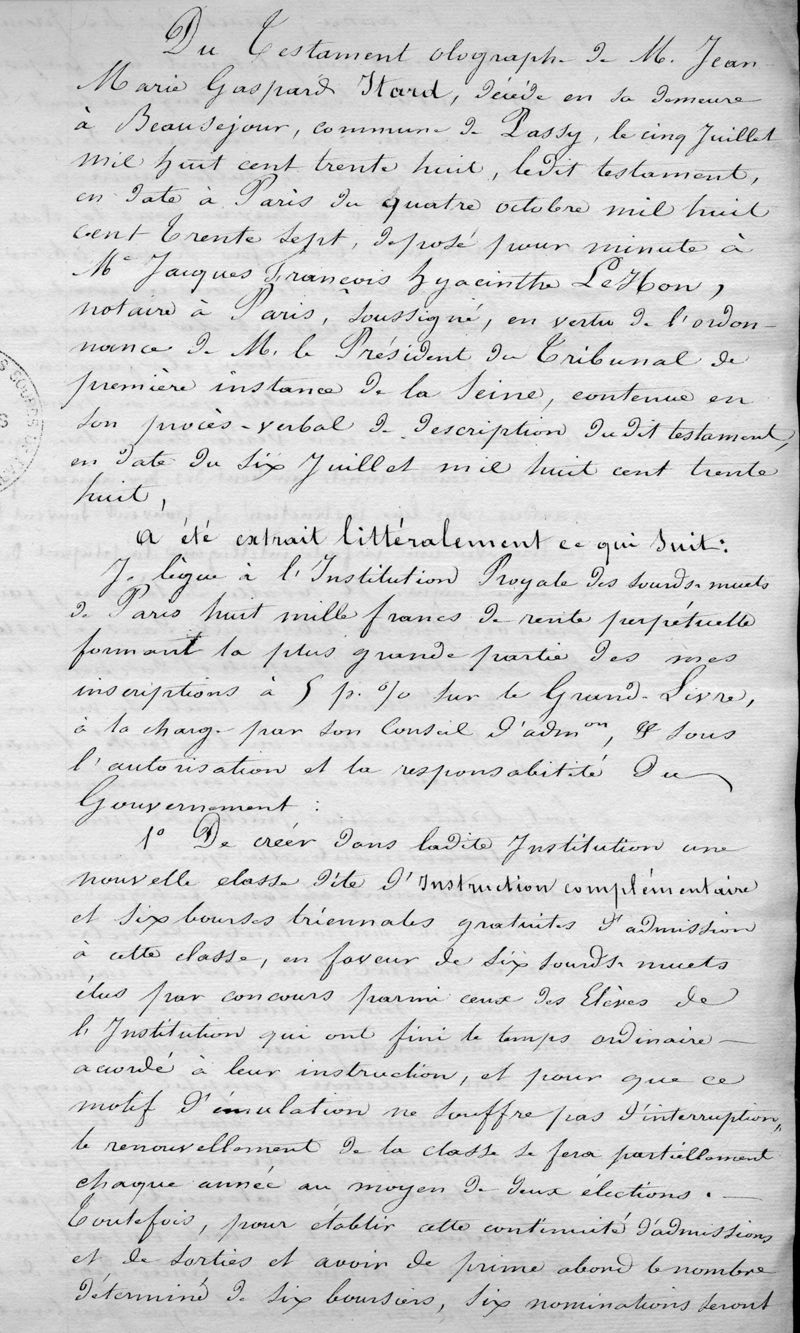 Du Testament olographe de M. Jean-
Marie Gaspard Itard, décédé en sa demeure
à Beauséjour, commune de Passy, le cinq Juillet
mil huit cent trente huit, ledit testament,
en date à Paris du quatre octobre mil huit
cent trente sept, déposé pour minute à
Me Jacques François hyacinthe LeHon,
notaire à Paris, soussigné, en vertu de l'ordon-
nance de M. le Président du Tribunal de
première instance de la Seine, contenue en
son procès-verbal de description dudit testament,
en date du six Juillet mil huit cent trente
huit,
a été extrait littéralement ce qui suit:
Je lègue à l'Institution Royale des sourds-muets
de Paris huit mille francs de rente perpétuelle
formant la plus grande partie des mes
inscriptions à 5 p. % sur le Grand-Livre,
à la charge par son Conseil d'admon, & sous
l'autorisation et la responsabilité du
Gouvernement :
1° De créer dans ladite Institution une
nouvelle classe dite d'Instruction complémentaire
et six bourses triennales gratuites d'admission
à cette classe, en faveur de six sourds-muets
élus par concours parmi ceux des Elèves de
l'Institution qui ont fini le temps ordinaire
accordé à leur instruction, et pour que ce
motif d'émulation ne souffre pas d'interruption,
le renouvellement de la classe se fera partiellement
chaque année au moyen de deux élections. —
Toutefois, pour établir cette continuité d'admissions
et de sorties et avoir de prime abord le nombre
déterminé de six boursiers, six nominations seront